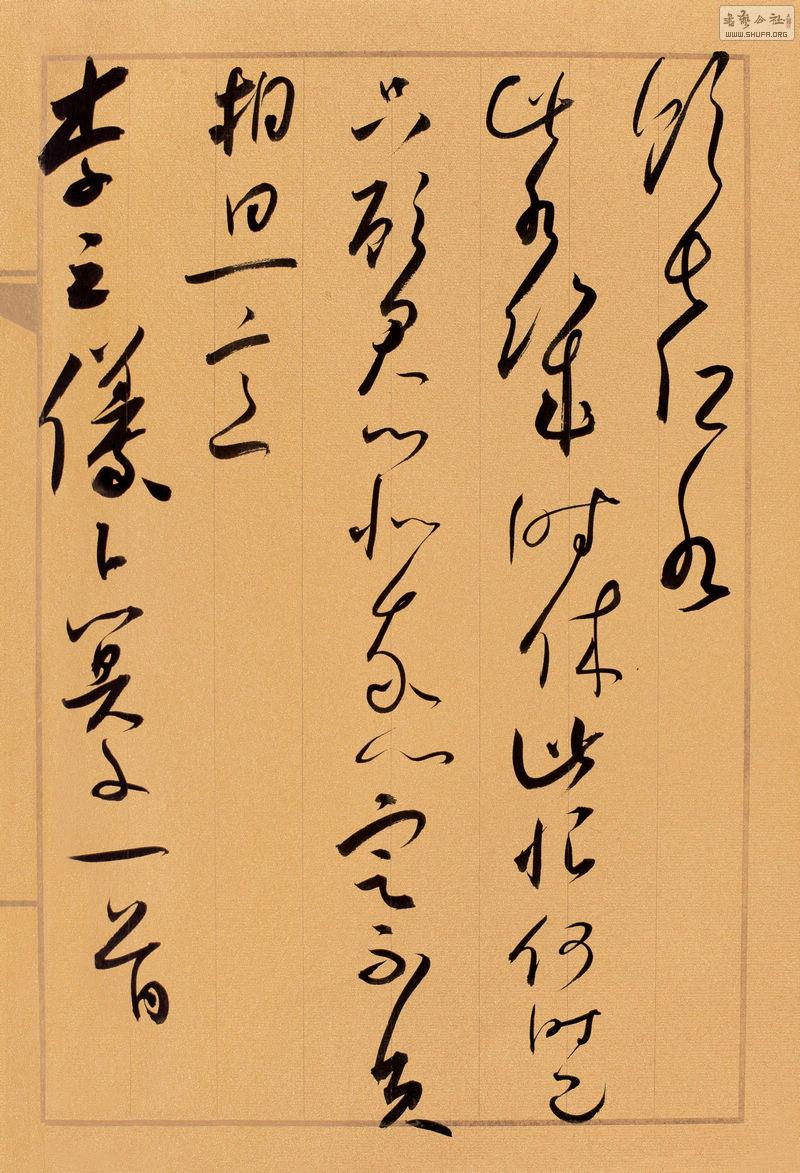 書藝公社
WWW.SHUFA.ORG
飲長江水
此水幾時休此恨何時已
只願君心似我心定不負
相思意
李之儀卜算子一首